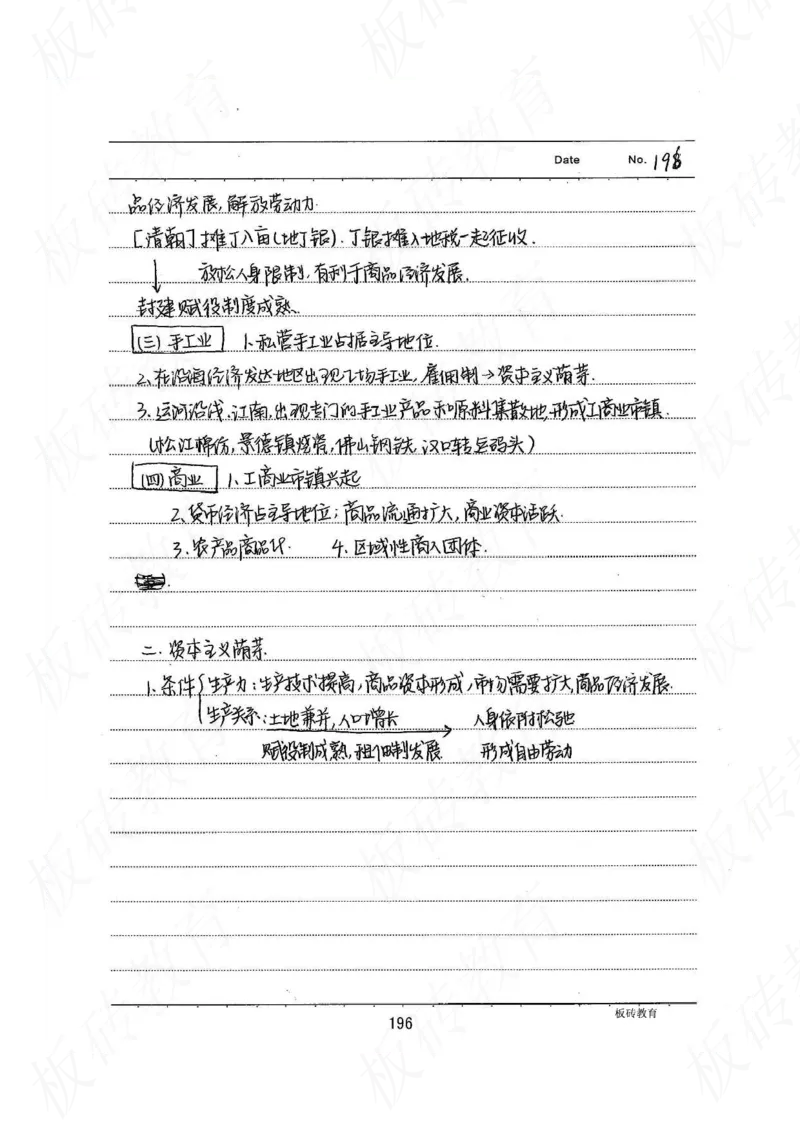 Date No. 198
品经济发展,解放劳动力.
[清朝]摊丁入亩(地丁银).丁银摊入地税一起征收.
放松人身限制,有利于商品经济发展.
封建赋役制度成熟.
(三)手工业 1.私营手工业占据主导地位.
2.在沿海经济发达地区出现工场手工业,雇佣制→资本主义萌芽.
3.运河沿线、江南,出现专门的手工业产品和原料集散地,形成工商业市镇.
(松江棉纺,景德镇烧瓷,佛山钢铁,汉口转运码头)
(四)商业 1.工商业市镇兴起
2.货币经济占主导地位;商品流通扩大,商业资本活跃.
3.农产品商品化. 4.区域性商人团体.
二.资本主义萌芽.
1.条件{生产力:生产技术提高,商品资本形成,市场需要扩大,商品经济发展.
生产关系:土地兼并,人口增长 → 人身依附松弛
赋役制成熟,租佃制发展 形成自由劳动
196
板砖教育